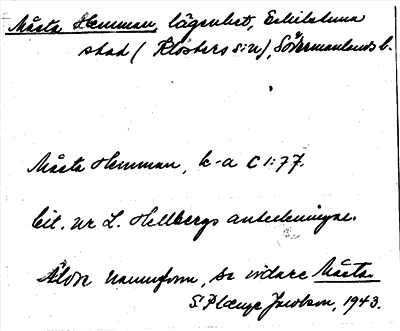 Måsta Hemman, lägenhet, Eskilstuna
stad (Klosters s:n), Södermanlands l.
Måsta Hemman, k-a C 1:77.
Cit. ur L. Hellbergs anteckningar.
Äldre namnform, se vidare Måsta.
S. Plænge Jacobson, 1943.